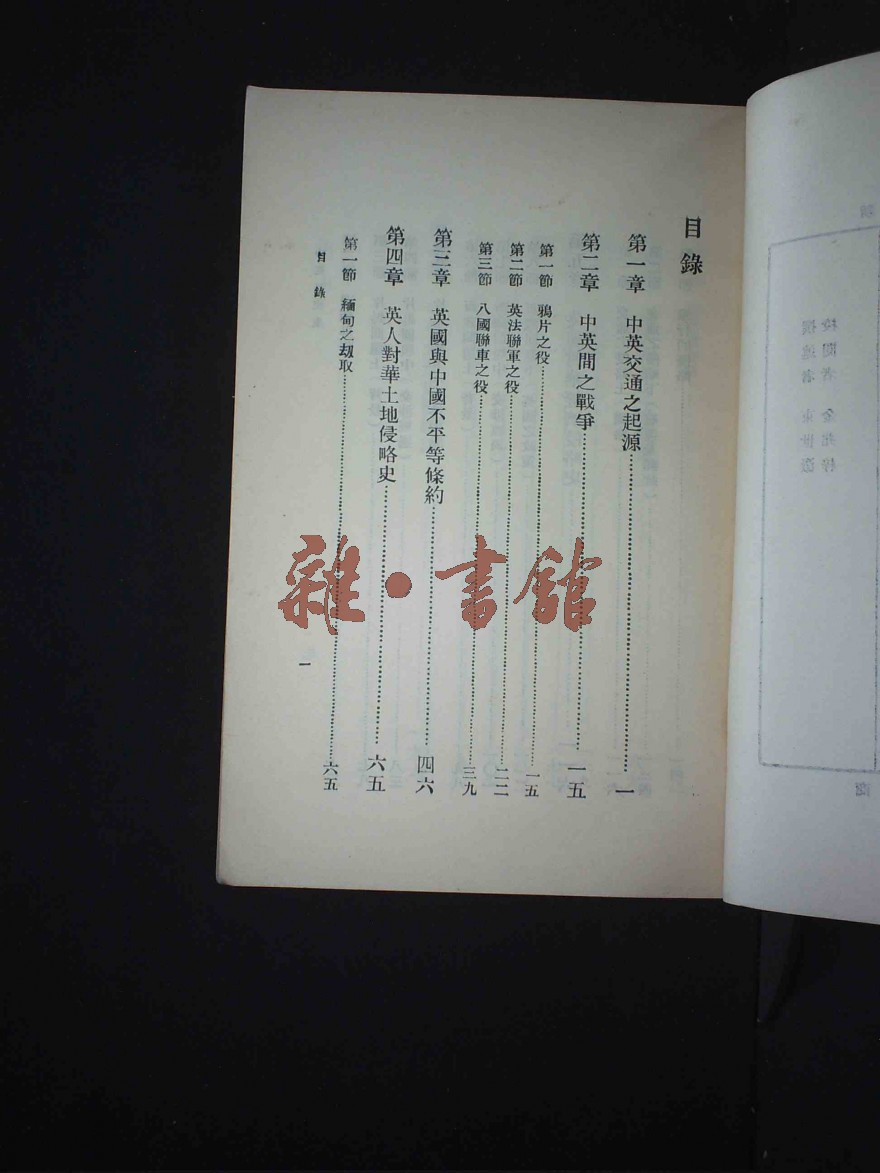 目錄
第一章 中英交通之起源……一
第二章 中英間之戰爭……一五
第一節 鴉片之役……一五
第二節 英法聯軍之役……二二
第三節 八國聯車之役……三九
第三章 英國與中國不平等條約……四六
第四章 英人對華土地侵略史……六五
第一節 緬甸之刼取……六五
目錄
一
雜·書館